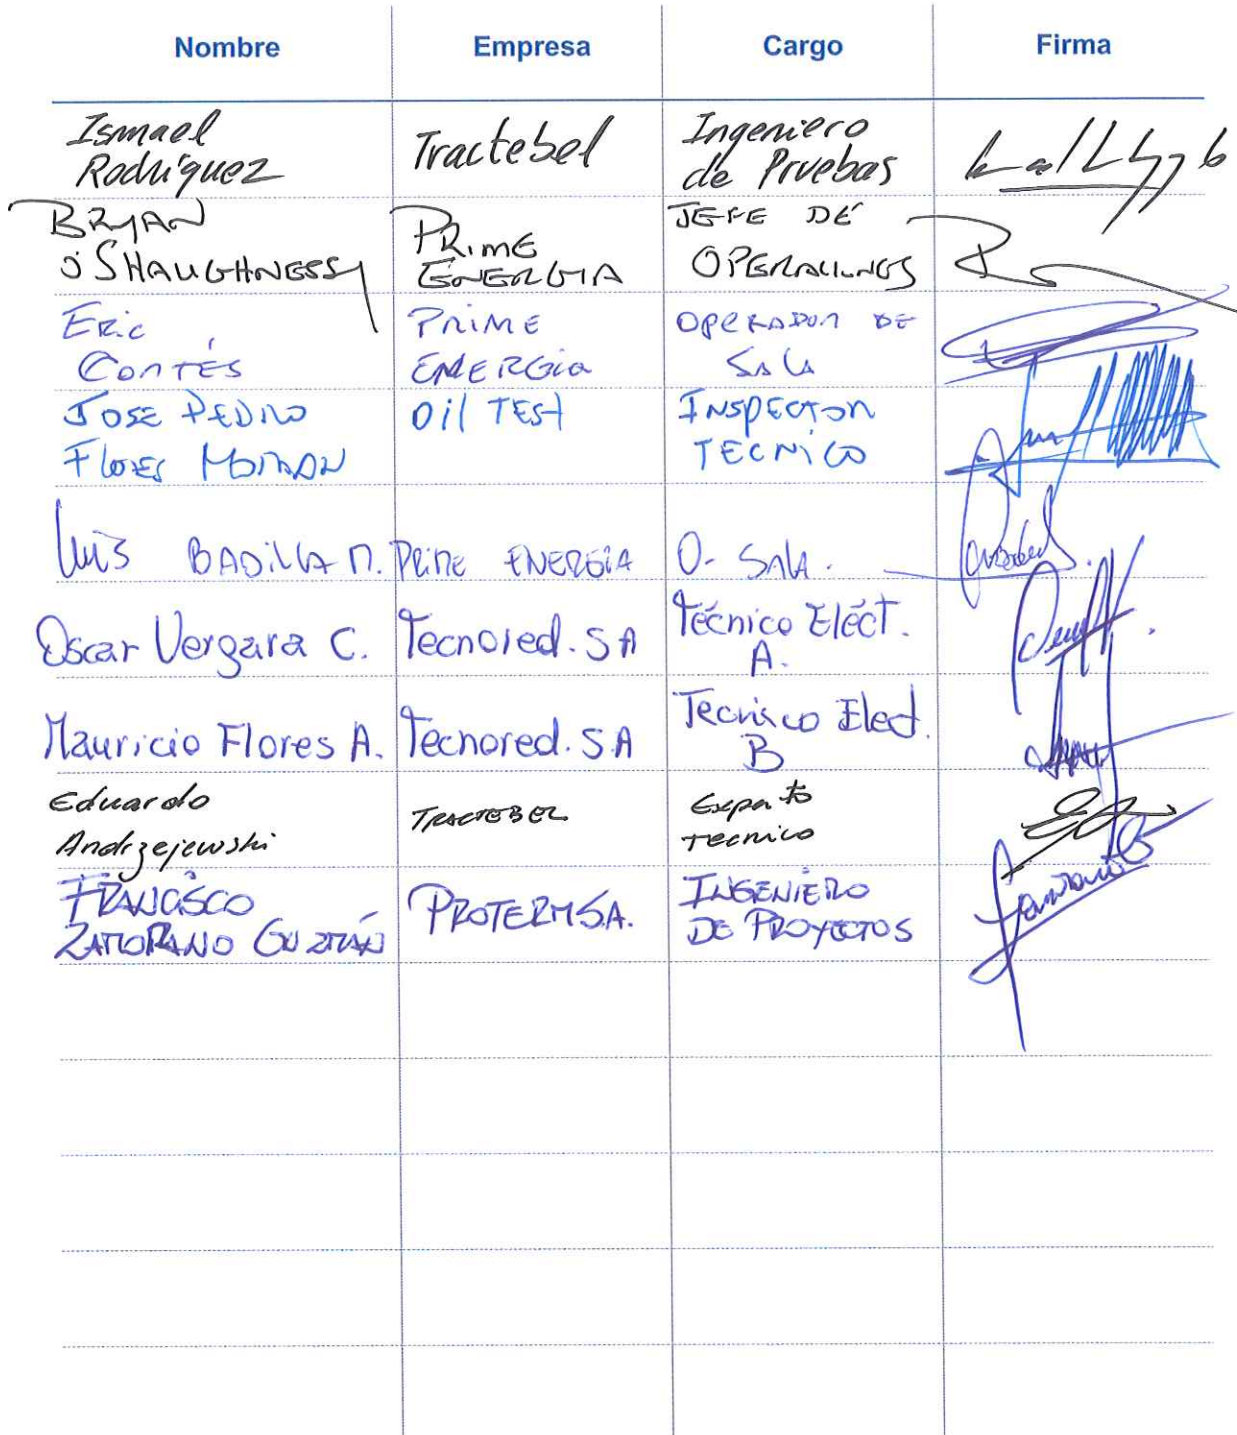 Nombre Empresa Cargo Firma
Ismael Rodríguez Tractebel Ingeniero de Pruebas
BRYAN O'SHAUGHNESSY PRIME ENERGIA JEFE DE OPERACIONES
ERic CORTÉS PRIME ENERGia OPERADOR DE SALA
JOSE PEDRO FLORES MORAN Oil TEST INSPECTOR TECNICO
Luis BADILLA M. PRIME ENERGIA O. SALA.
Oscar Vergara C. Tecnored. SA Técnico Eléct. A.
Mauricio Flores A. Tecnored. SA Tecnico Elect. B
Eduardo Andrzejewski TRACTEBEL Experto TECNICO
FRANCISCO ZAMORANO GUZMÁN PROTERM S.A. INGENIERO DE PROYECTOS